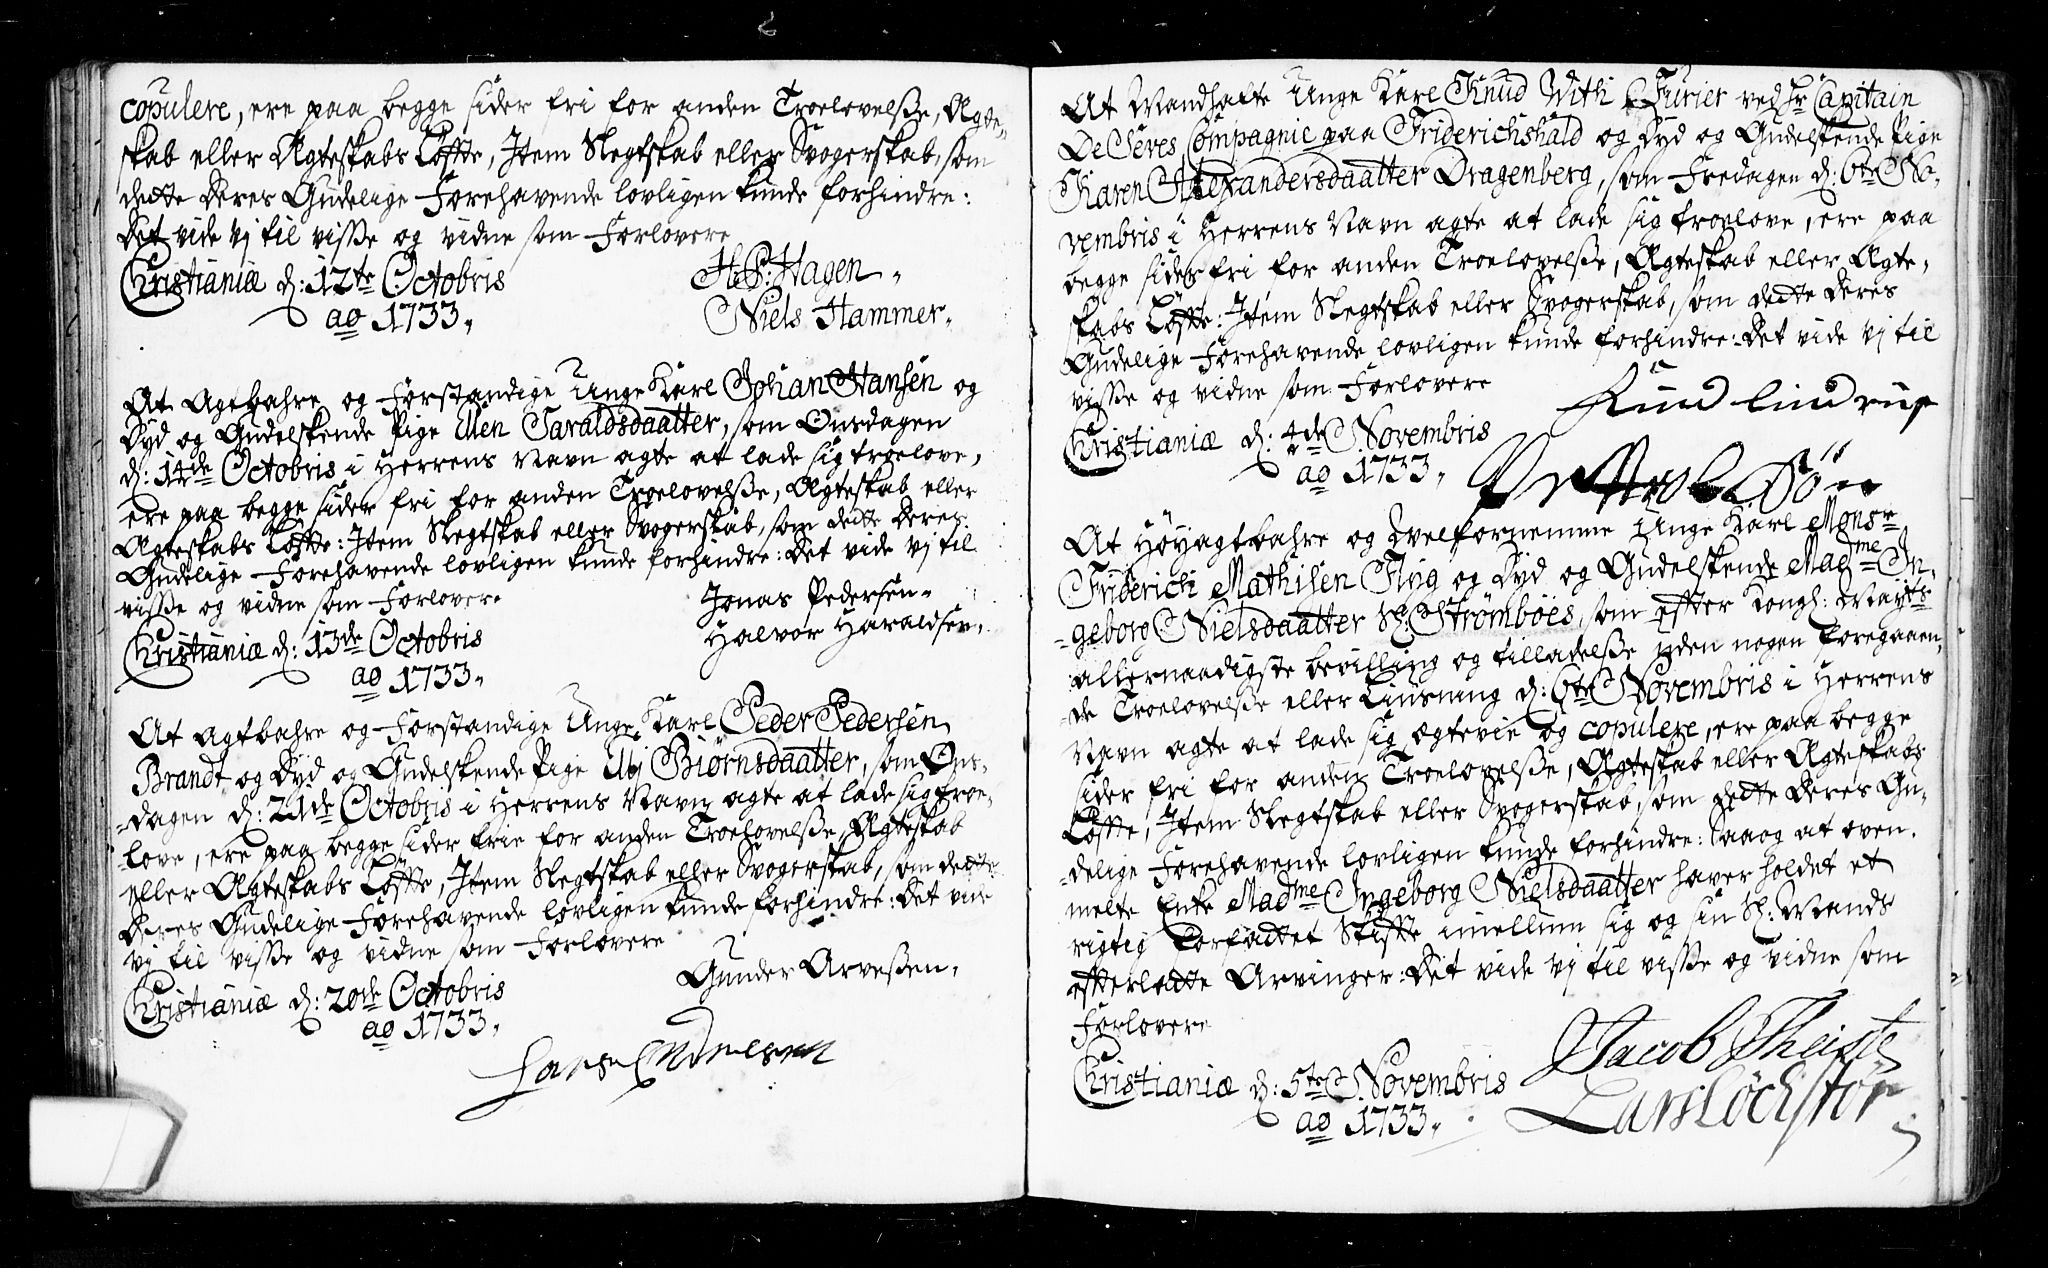 copulere, ere paa begge sider fri for anden Troelovelse, Ægte-
skab eller Ægteskabs Løffte, Item Slegtskab eller Svogerskab, som
dette deres Gudelige Forehavende lovligen kunde forhindre:
det vide vj til visse og vidne som Forlovere
Christianiæ d: 12te Octobris
ao 1733.
H: P: Hagen.
Niels Hammer.
At Agtbahre og Forstandige Unge Karl Johan Hansen og
Dyd og Gudelskende Pige Elen Taraldsdaatter, som Onsdagen
d: 14de Octobris i Herrens Navn agte at lade sig troelove,
ere paa begge sider fri for anden Troelovelse, Ægteskab eller
Ægteskabs Løffte: Item Slegtskab eller Svogerskab, som dette deres
Gudelige Forehavende lovligen kunde forhindre: det vide vj til
visse og vidne som Forlovere
Christianiæ d: 13de Octobris
ao 1733.
Jonas Pedersen.
Halvor Haraldsen.
At Agtbahre og Forstandige Unge Karl Peder Pedersen
Brandt og Dyd og Gudelskende Pige Biørnsdaatter, som Ons-
-dagen d: 21de Octobris i Herrens Navn agte at lade sig troe-
love, ere paa begge sider frie for anden Troelovelse, Ægteskab
eller Ægteskabs Løffte, Item Slegtskab eller Svogerskab, som dette
deres Gudelige Forehavende lovligen kunde forhindre: det vide
vj til visse og vidne som Forlovere
Christianiæ d: 20de Octobris
ao 1733.
Gunder Arvessen.
Lars
At Mandhafte Unge Karl Knud With Furier ved Hr Capitain
De Seves Compagnie paa Friderichshald og Dyd og Gudelskende Pige
Karen Alexandersdaatter Dragenberg, som Fredagen d: 6te No-
vembris i Herrens Navn agte at lade sig troelove, ere paa
begge sider fri for anden Troelovelse, Ægteskab eller Ægte-
skabs Løffte: Item Slegtskab eller Svogerskab, som dette deres
Gudelige Forehavende lovligen kunde forhindre: det vide vj til
visse og vidne som Forlovere
Christianiæ d: 4de Novembris
ao 1733.
At Høyagtbahre og Velfornemme Unge Karl Monsr
Friderich Mathisen Flyg og Dyd og Gudelskende Madme In-
-geborg Nielsdaatter Sl: Strømboes, som efter Kongl: Mayts
allernaadigste bevilling og tilladelse uden nogen foregaaen-
-de Troelovelse eller Liusning d: 6te Novembris i Herrens
Navn agte at lade sig ægtevie og copulere, ere paa begge
sider fri for anden Troelovelse, Ægteskab eller Ægteskabs
Løffte, Item Slegtskab eller Svogerskab, som dette deres Gu-
-delige Forehavende lovligen kunde forhindre: Saa og at oven-
melte Enke Madme Ingeborg Nielsdaatter haver holdet et
rigtig forfattet Skiffte imellum sig og sin Sl: Mands
efterladte Arvinger: det vide vj til visse og vidne som
Forlovere
Christianiæ d: 5te Novembris
ao 1733.
Jacob Theiste
Lars Löchstör